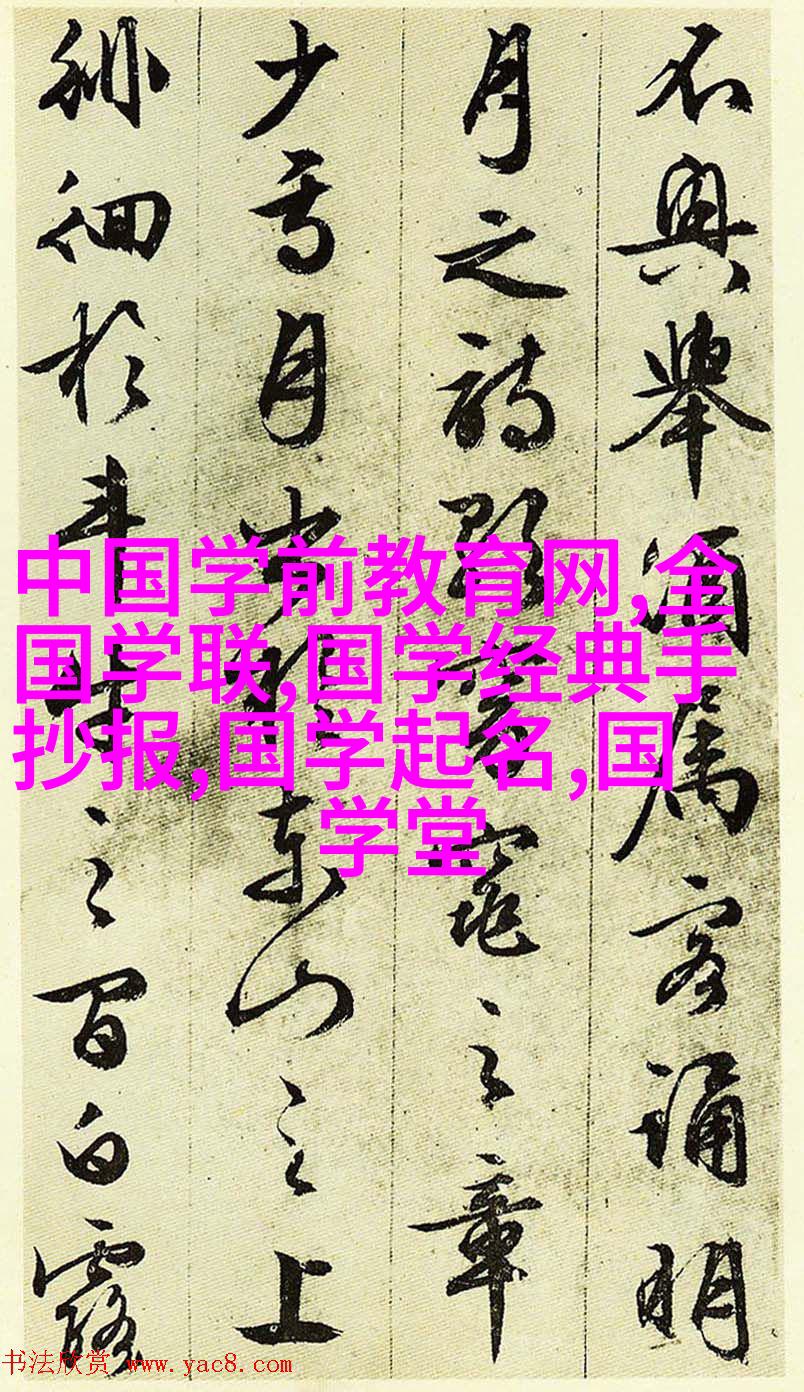 不興舉酒属客誦明
月之詩歌窈窕之章
少焉月出於東山之上
徘徊於斗牛之間白露
中国学前教育网,全
国学联,国学经典手
抄报,国学起名,国
学堂
书法欣赏 www.yac8.com